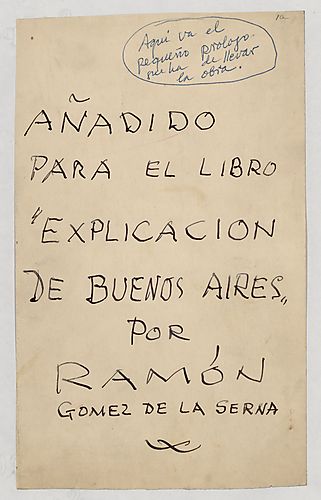 1a
Aquí va el
pequeño prologo
que ha de llevar
la obra.
AÑADIDO
PARA EL LIBRO
"EXPLICACION
DE BUENOS AIRES"
POR
RAMÓN
GOMEZ DE LA SERNA